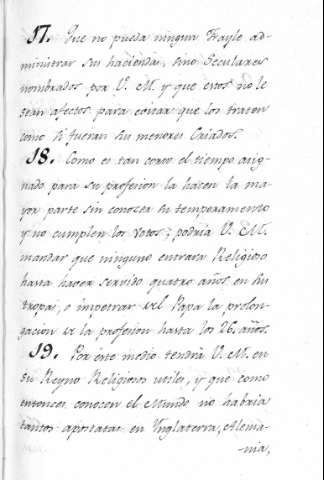 17. Que no pueda ningun Frayle ad-
ministrar su hacienda, sino Seculares
nombrados por V. M. y que estos no le
sean afectos para evitar que los traten
como si fueran sus menores Criados.
18. Como es tan corto el tiempo asig-
nado para su profesion la hacen la ma-
yor parte sin conocer su temperamento
y no cumplen los votos; podria V. M.
mandar que ninguno entrara Religioso
hasta haver servido quatro años en su
tropa, e impetrar del Papa la prolon-
gacion de la profesion hasta los 26. años.
19. Por este medio tendria V. M. en
su Reyno Religiosos utiles, y que como
entonces conocen el Mundo no habria
tantos apostatas en Ynglaterra, Alema-
-nia,